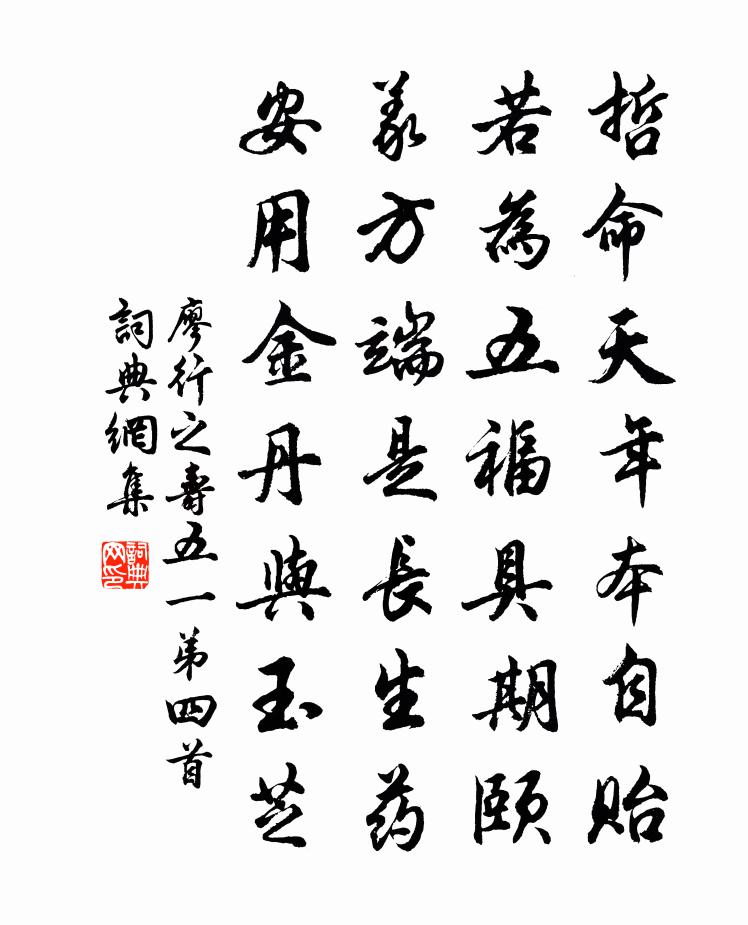 哲命天年本自貽
若為五福具期頤
義方端是長生药
安用金丹與玉芝
廖行之壽五一第四首
詞典網集
詞典网印